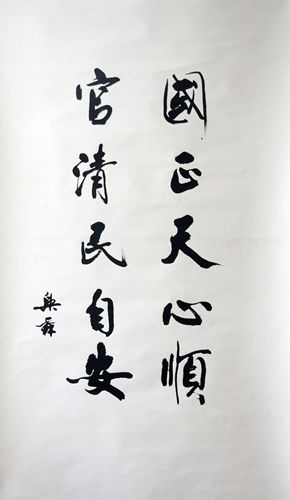 國正天心順
官清民自安